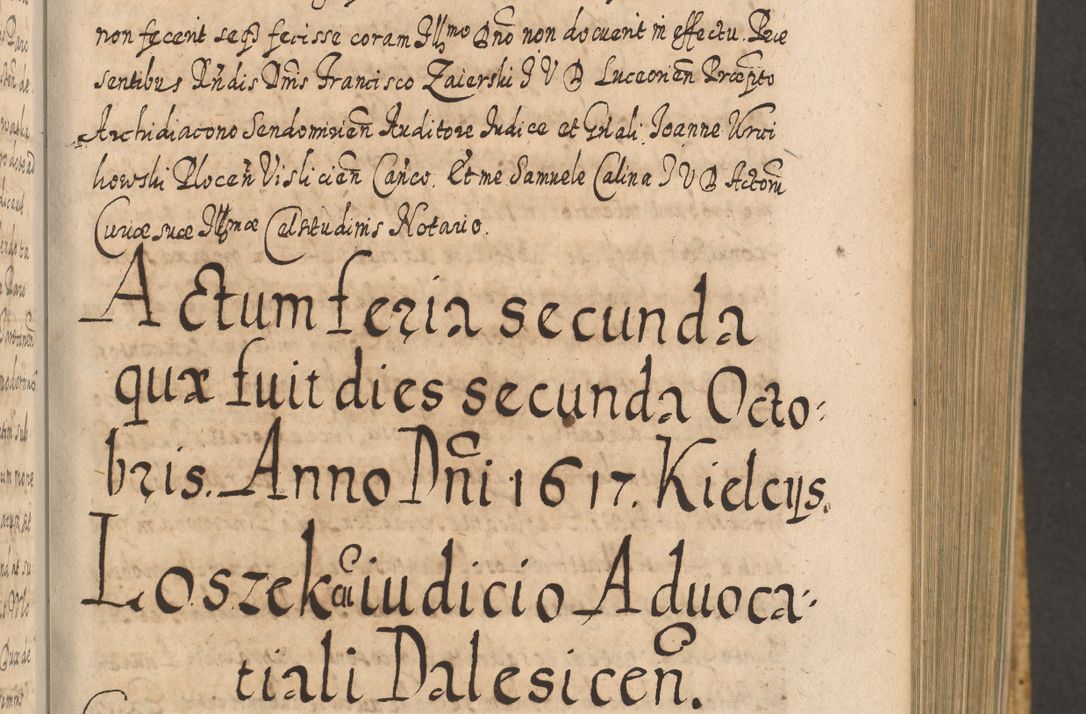 non fecerit seq3 fecisse coram Illmo Dno non docuerit in effectu. Præ
sentibus Rndis Dnis Francisco Zaierski I V D Luceorien Præpto
Archidiacono Sendomirien Auditore Iudice et Gnali Ioanne Urvi
howski Plocen Vislicien Canco. Et me Samuele Calina I V D Actoru
Curiæ suæ Illmæ Celsitudinis Notario.
Actum feria secunda
quæ fuit dies secunda Octo:
bris. Anno Dñi 1617. Kielcijs.
Loszek cū iudicio Aduoca-
tiali Dalesiceñ.